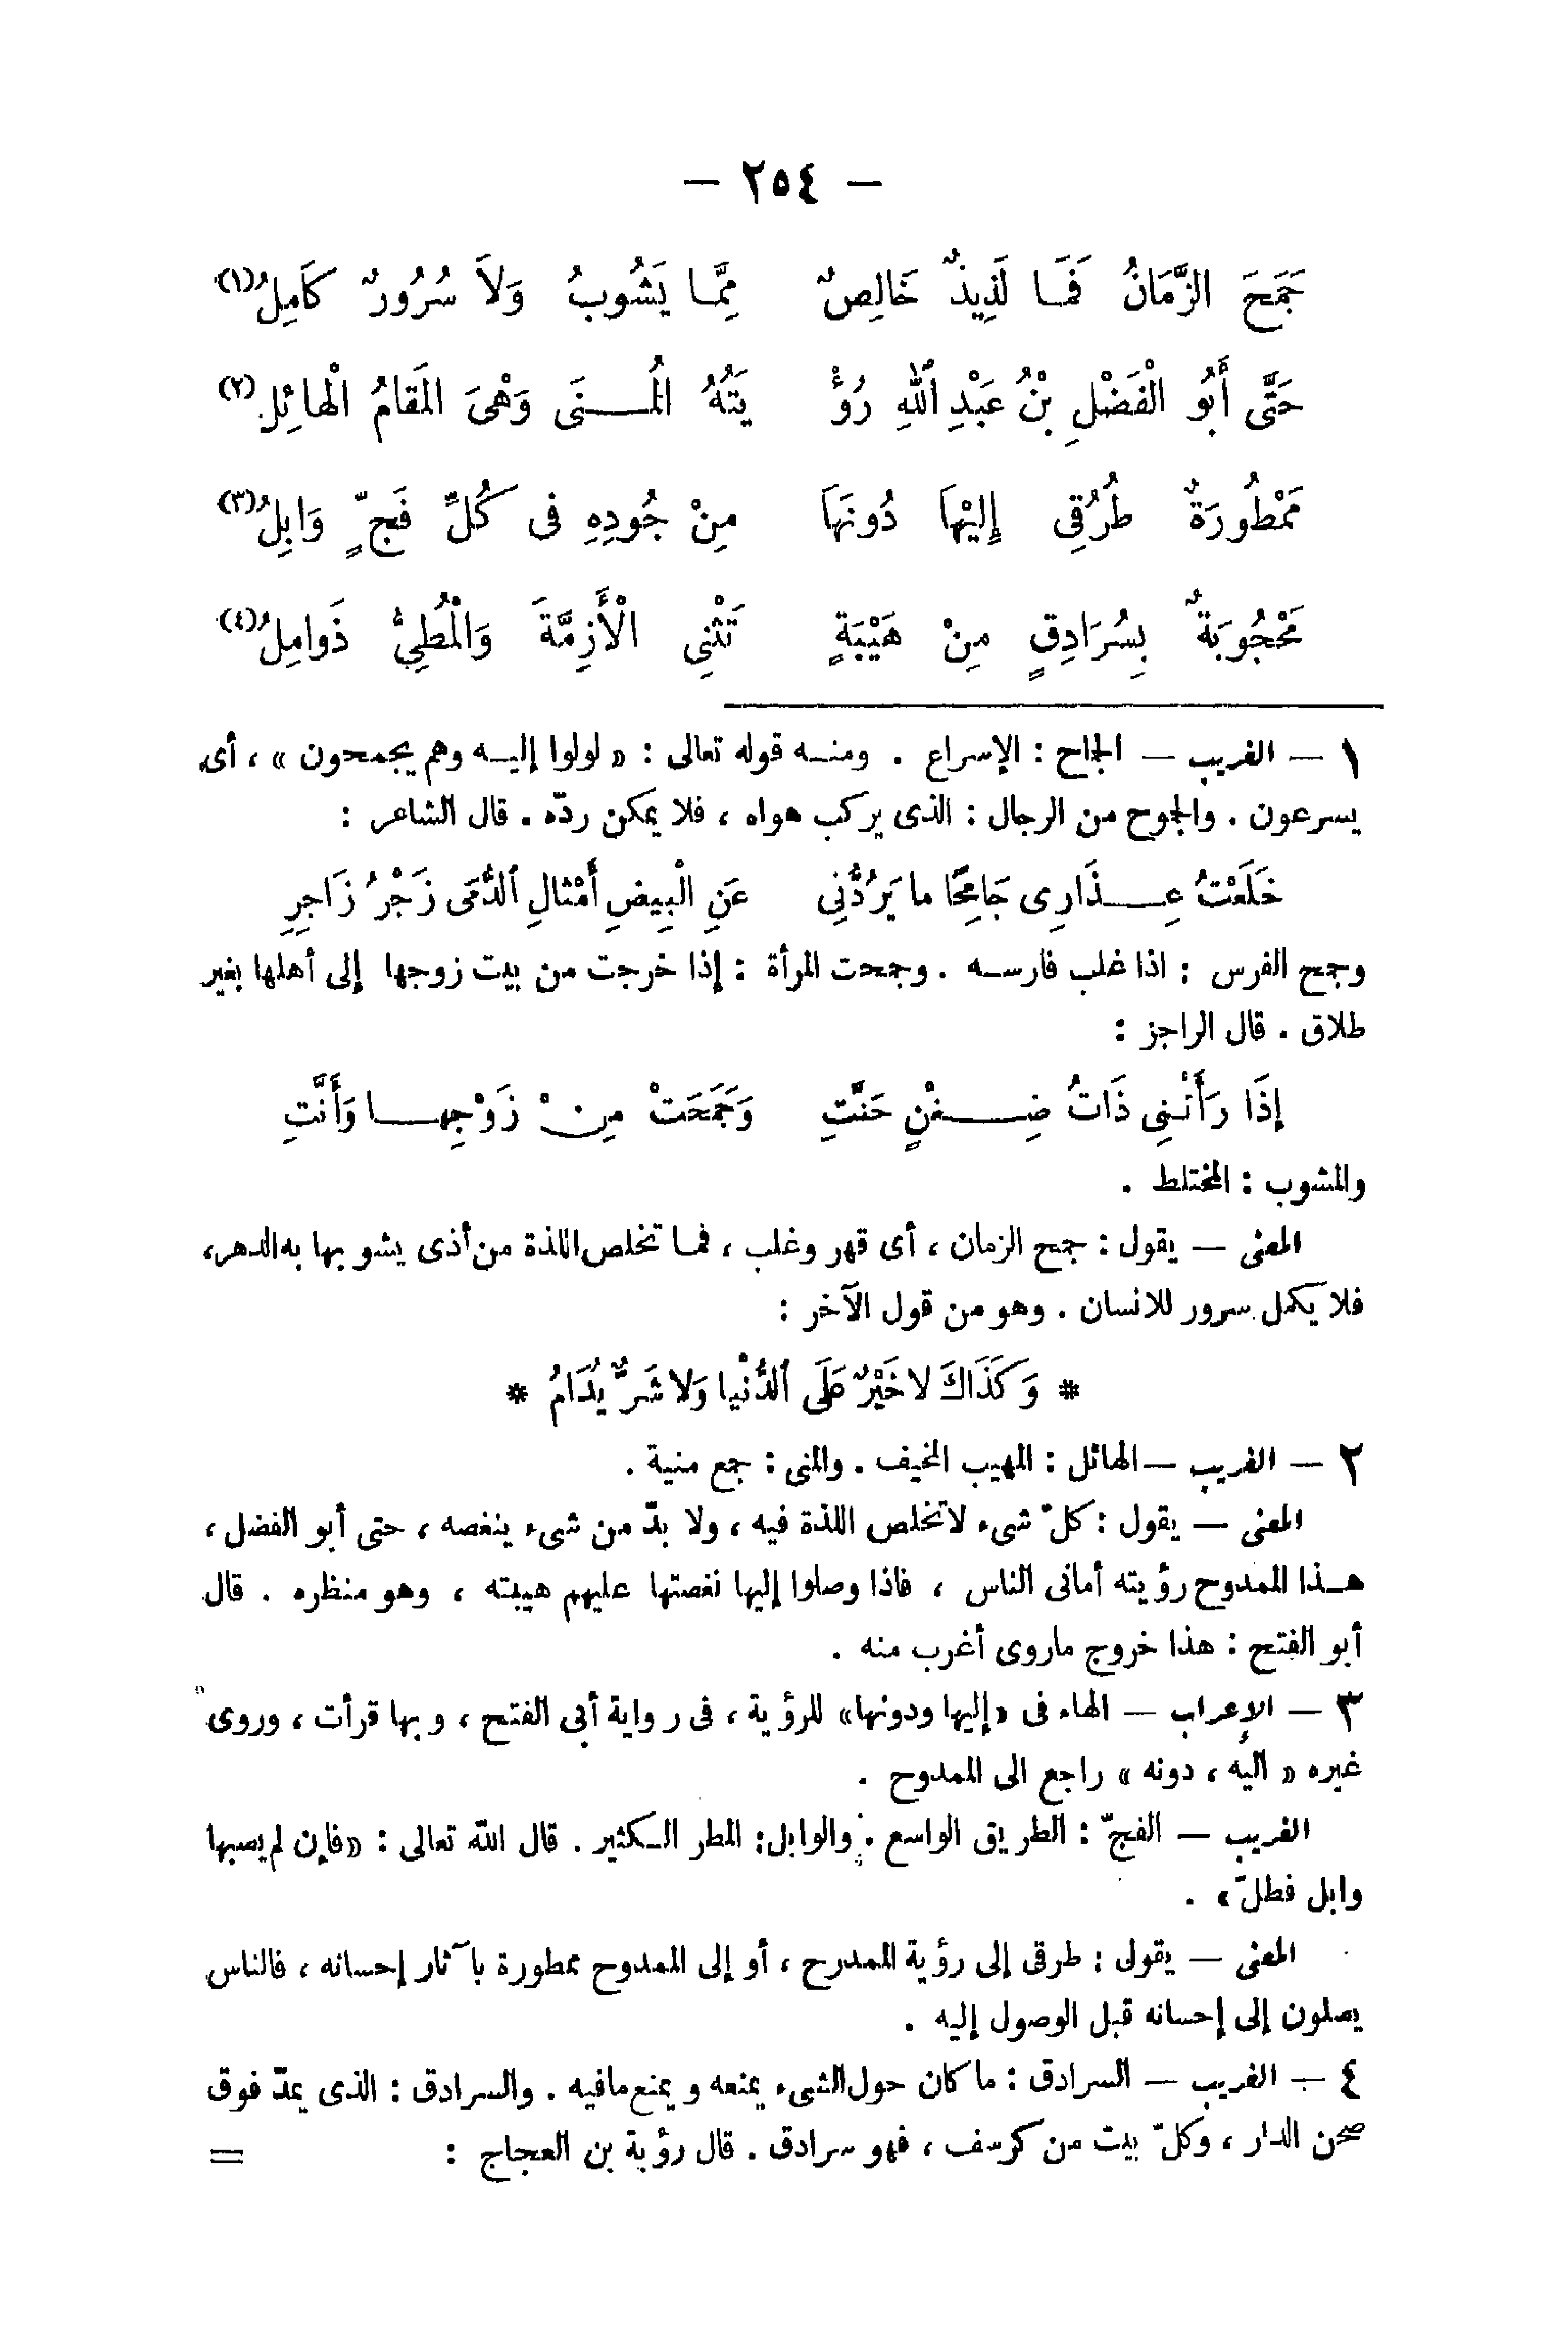 — ٢٥٤ —
جَمَحَ الزَّمَانُ فَمَا لَذِيذٌ خَالِصٌ مِمَّا يَشُوبُ وَلاَ سُرُورٌ كَامِلُ(١)
حَتَّى أَبُو الْفَضْلِ بْنُ عَبْدِ اللهِ رُؤْ يَتُهُ الْمُنَى وَهْىَ الْمَقَامُ الْهائِلُ(٢)
مَمْطُورَةٌ طُرُقِى إِلَيْهاَ دُونَهاَ مِنْ جُودِهِ فى كُلِّ فَجٍّ وَابِلُ(٣)
مَحْجُوبَةٌ بِسُرَادِقٍ مِنْ هَيْبَةٍ تَثْنِى الْأَزِمَّةَ وَالْمُطِىُّ ذَوامِلُ(٤)
١ — الغريب — الجماح : الإسراع . ومنه قوله تعالى : « لولوا إليه وهم يجمحون » ، أى
يسرعون . والجموح من الرجال : الذى يركب هواه ، فلا يمكن ردّه . قال الشاعر :
خَلَعْتُ عِذَارِى جَامِحًا ما يَرُدُّنِى عَنِ الْبِيضِ أَمْثالِ الدُّمَى زَجْرُ زَاجِرِ
وجمح الفرس : اذا غلب فارسه . وجمحت المرأة : إذا خرجت من بيت زوجها إلى أهلها بغير
طلاق . قال الراجز :
إِذَا رَأَتْنِى ذَاتُ ضِغْنٍ حَنَّتِ وَجَمَحَتْ مِنْ زَوْجِها وَأَنَّتِ
والمشوب : المختلط .
المعنى — يقول : جمح الزمان ، أى قهر وغلب ، فما تخلص اللذة من أذى يشوبها به الدهر ،
فلا يكمل سرور للانسان . وهو من قول الآخر :
* وَكَذَاكَ لا خَيْرٌ عَلَى الدُّنْيا وَلا شَرٌّ يُدَامُ *
٢ — الغريب — الهائل : المهيب المخيف . والمنى : جمع منية .
المعنى — يقول : كلّ شىء لا تخلص اللذة فيه ، ولا بدّ من شىء ينغصه ، حتى أبو الفضل ،
هذا الممدوح رؤيته أمانى الناس ، فاذا وصلوا إليها نغصتها عليهم هيبته ، وهو منظره . قال
أبو الفتح : هذا خروج ماروى أغرب منه .
٣ — الإعراب — الهاء فى «إليها ودونها» للرؤية ، فى رواية أبى الفتح ، وبها قرأت ، وروى
غيره « اليه ، دونه » راجع الى الممدوح .
الغريب — الفجّ : الطريق الواسع . والوابل : المطر الكثير . قال الله تعالى : «فإن لم يصبها
وابل فطلّ» .
المعنى — يقول : طرقى إلى رؤية الممدرح ، أو إلى الممدوح ممطورة بآثار إحسانه ، فالناس
يصلون إلى إحسانه قبل الوصول إليه .
٤ — الغريب — السرادق : ما كان حول الشىء يمنعه ويمنع مافيه . والسرادق : الذى يمدّ فوق
صحن الدار ، وكلّ بيت من كرسف ، فهو سرادق . قال رؤبة بن العجاج : =